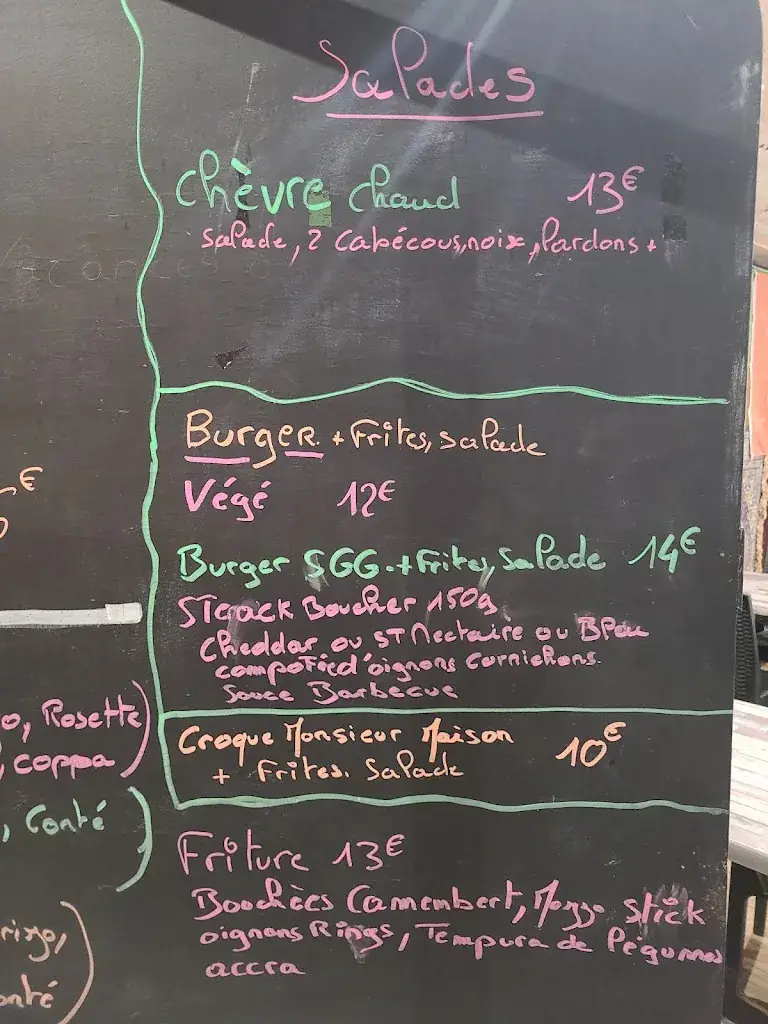 Salades
Chèvre chaud 13€
Salade, 2 Cabécous, noix, lardons +
Burger + Frites, salade
Végé 12€
Burger SGG. + Frites, Salade 14€
STeack Boucher 150g
Cheddar ou ST Nectaire ou BPeu
compotée d'oignons Cornichons.
Sauce Barbecue
Croque Monsieur Maison 10€
+ Frites. Salade
Friture 13€
Bouchées Camembert, Mozza Stick
oignons Rings, Tempura de légumes
accra
€
o, Rosette)
, coppa)
, Conté)
rizo,
onté)